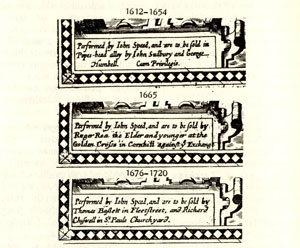 1612–1654
Performed by Iohn Speed, and are to be sold in
Popes-head alley by John Sudbury and George
Humbell. Cum Privilegio.
1665
Performed by Iohn Speed, and are to be sold by
Roger Rea the Elder and younger at the
Golden Crosse in Cornhill against yᵉ Exchange
1676–1720
Performed by Iohn Speed, and are to be sold by
Thomas Bassett in Fleetstreet, and Richard
Chiswell in St. Pauls Churchyard.